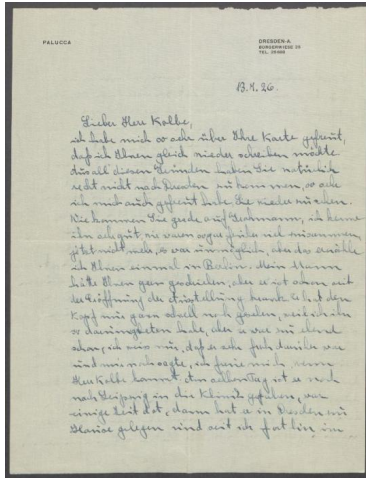 PALUCCA
DRESDEN-A.
BÜRGERWIESE 25
TEL.
26.
Lieber Herr Kolbe,
ich habe mich so sehr über Ihre Karte gefreut,
daß ich Ihnen gleich wieder schreiben möchte
aus all diesen Gründen haben Sie natürlich
recht nicht nach Dresden zu kommen, so sehr
ich mich auch gefreut hätte Sie wieder zu sehen.
Wie kommen Sie gerade auf ich kenne
ihn sehr gut, wir waren sogar früher viel zusammen,
jetzt nicht mehr, es war unmöglich, aber das erzähle
ich Ihnen einmal in Berlin. Mein Mann
hätte Ihnen gern geschrieben, aber er ist schon seit
der Eröffnung der Ausstellung krank. Er hat den
Kopf mir ganz schnell noch weil ich ihn
so darum gebeten habe, aber es war zu elend
schon, ich weiss nur, daß er sehr froh darüber war
und mir noch sagte, ich freue mich, wenn
Herr Kolbe kommt. Am Tag ist er noch
nach Leipzig in die Klinik gefahren, war
einige Zeit dort, dann hat er in Dresden zu
Hause gelegen und seit ich fort bin im